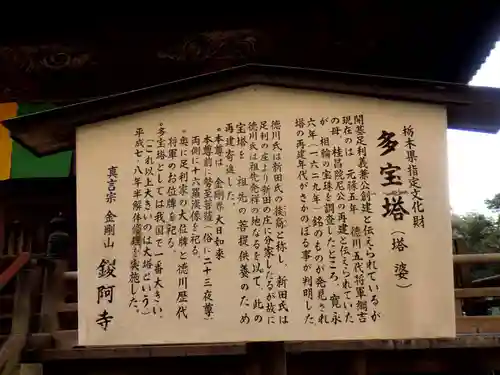 栃木県指定文化財
多宝塔（塔婆）
開基足利義兼公創建と伝えられているが
現在のは元禄五年 徳川五代将軍綱吉
の母、桂昌院尼公の再建と伝えられていた
が、相輪の宝珠を調査したところ、寛永
六年（一六二九年）銘のものが発見され
塔の再建年代がさかのぼる事が判明した。
徳川氏は新田氏の後裔と称し、新田氏は
足利の庄より新田の庄に分家したるが故に
徳川氏は祖先発祥の地なるを以て、此の
宝塔を 祖先の菩提供養のため
再建寄進した。
・本尊は 金剛界大日如来
本尊前に勢至菩薩（俗に二十三夜尊）
両側に十六羅漢像を祀る。
・奥に足利家の大位牌と徳川歴代
将軍のお位牌を祀る。
・多宝塔としては我国で一番大きい。
（これ以上大きいのは大塔という）
平成七・八年半解体修復を実施した。
真言宗 金剛山 鑁阿寺